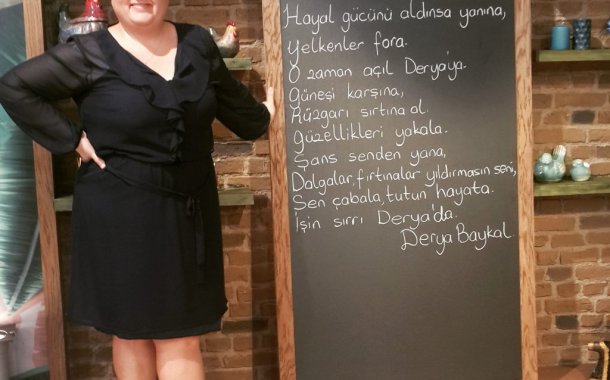 Hayal gücünü aldınsa yanına,
Yelkenler fora.
O zaman açıl Derya'ya.
Güneşi karşına,
Rüzgarı sırtına al.
Güzellikleri yakala.
Şans senden yana,
Dalgalar, fırtınalar yıldırmasın seni,
Sen çabala, tutun hayata.
İşin sırrı Derya'da.
Derya Baykal